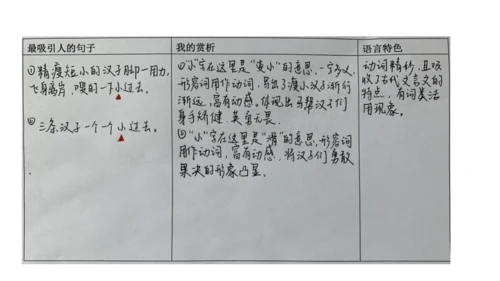 最吸引人的句子
我的赏析
语言特色
①精瘦短小的汉子脚一用力,
飞身离岸,嘿的一下小过去。
②三条汉子一个一个小过去。
①"小"字在这里是"变小"的意思,一字多义,
形容词用作动词,写出了瘦小汉子渐行
渐远,富有动感。体现出马帮汉子们
身手矫健、英勇无畏。
②"小"字在这里是"滑"的意思,形容词
用作动词,富有动感,将汉子们勇敢
果决的形象凸显。
动词精妙,且吸
收了古代文言文的
特点,有词类活
用现象。